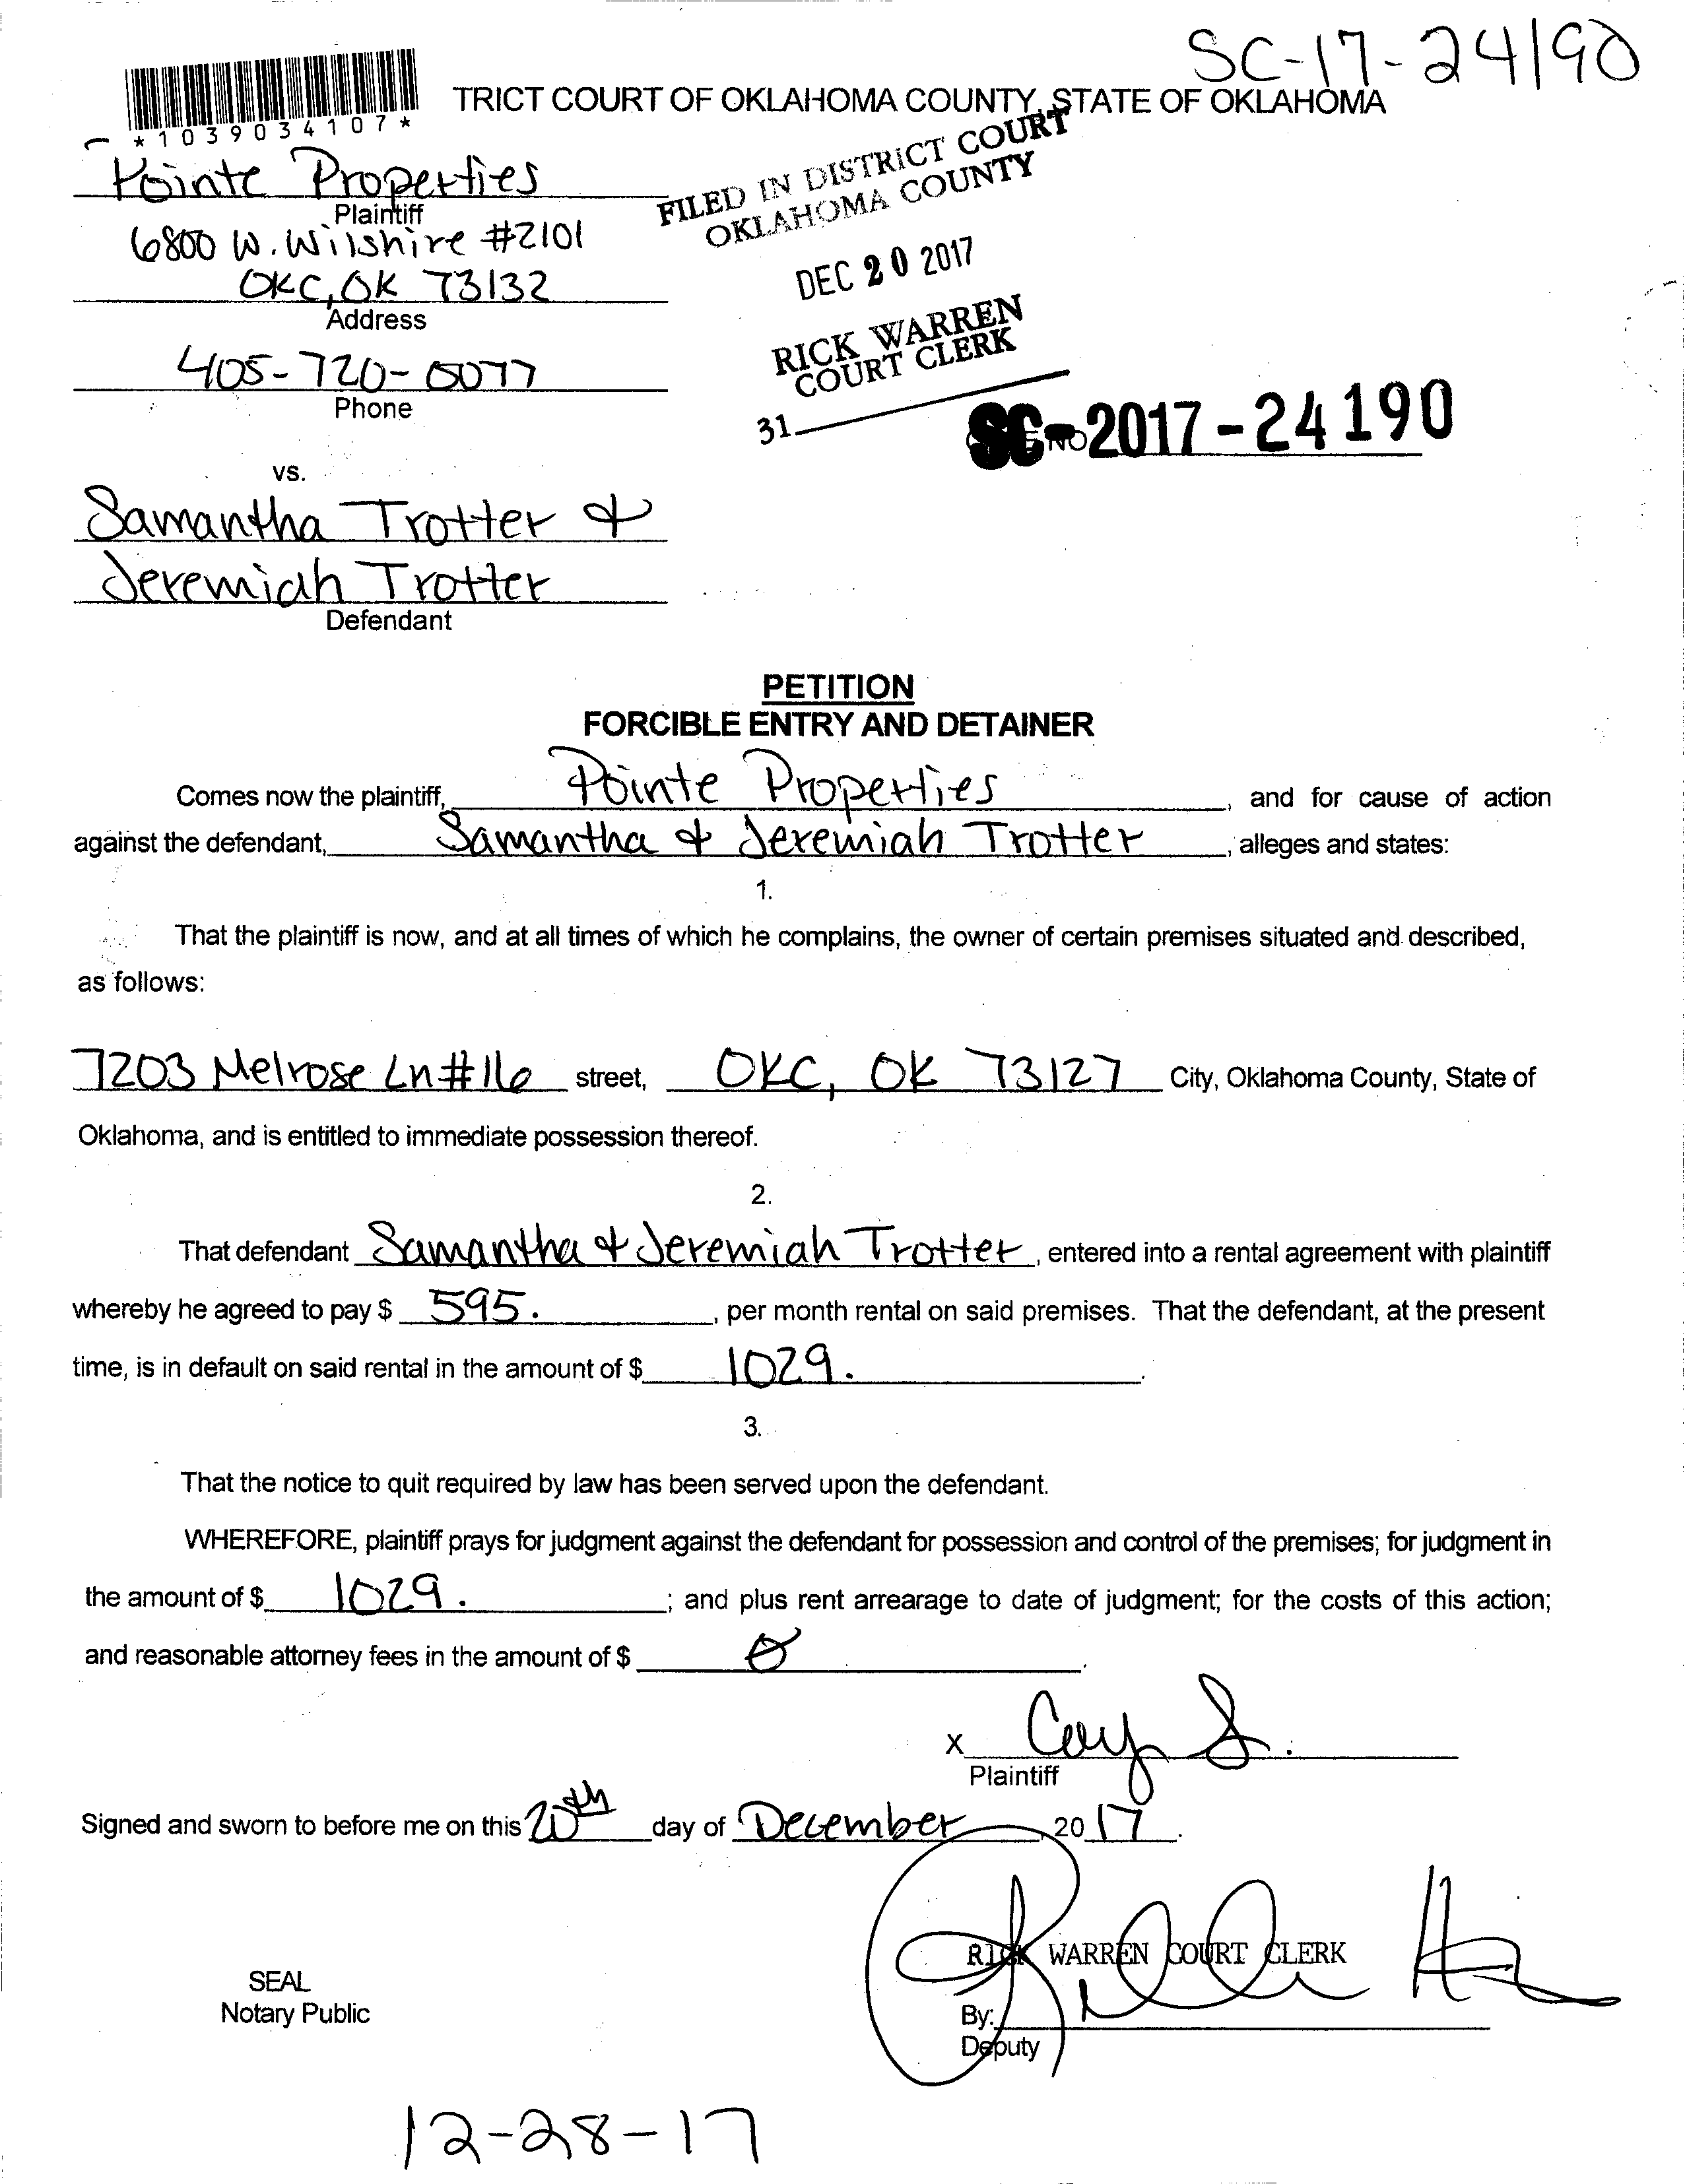 SC-17-24190
*1039034107*
TRICT COURT OF OKLAHOMA COUNTY, STATE OF OKLAHOMA
FILED IN DISTRICT COURT
OKLAHOMA COUNTY
DEC 20 2017
RICK WARREN
COURT CLERK
31
SC-2017-24190
NO
Pointe Properties
Plaintiff
6800 W. Wilshire #2101
OKC, OK 73132
Address
405-720-0077
Phone
vs.
Samantha Trotter &
Jeremiah Trotter
Defendant
PETITION
FORCIBLE ENTRY AND DETAINER
Comes now the plaintiff, Pointe Properties, and for cause of action
against the defendant, Samantha & Jeremiah Trotter, alleges and states:
1.
That the plaintiff is now, and at all times of which he complains, the owner of certain premises situated and described,
as follows:
7203 Melrose Ln #16 street, OKC, OK 73127 City, Oklahoma County, State of
Oklahoma, and is entitled to immediate possession thereof.
2.
That defendant Samantha & Jeremiah Trotter, entered into a rental agreement with plaintiff
whereby he agreed to pay $ 595., per month rental on said premises. That the defendant, at the present
time, is in default on said rental in the amount of $ 1029. .
3.
That the notice to quit required by law has been served upon the defendant.
WHEREFORE, plaintiff prays for judgment against the defendant for possession and control of the premises; for judgment in
the amount of $ 1029. ; and plus rent arrearage to date of judgment; for the costs of this action;
and reasonable attorney fees in the amount of $ Ø .
X
Plaintiff
Signed and sworn to before me on this 20th day of December, 2017.
RICK WARREN COURT CLERK
SEAL
Notary Public
By:
Deputy
12-28-17